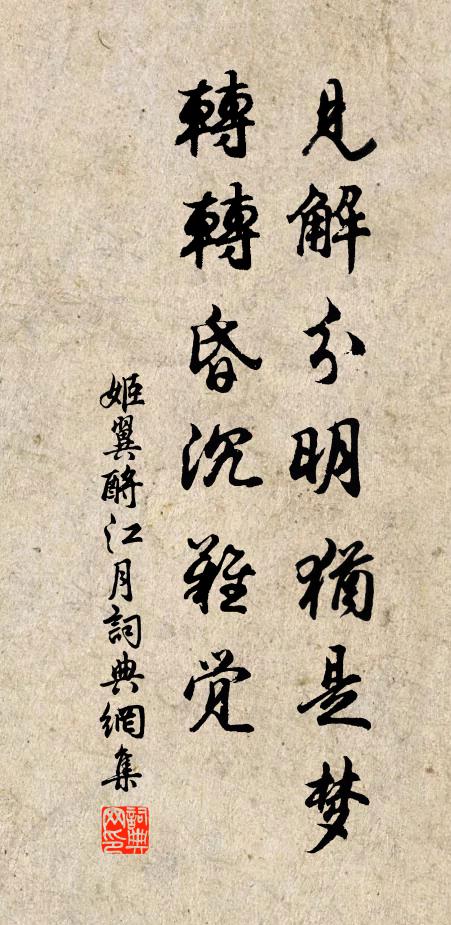 見解分明猶是梦
轉轉昏沉難觉
姬翼酹江月詞典網集
詞典
网印